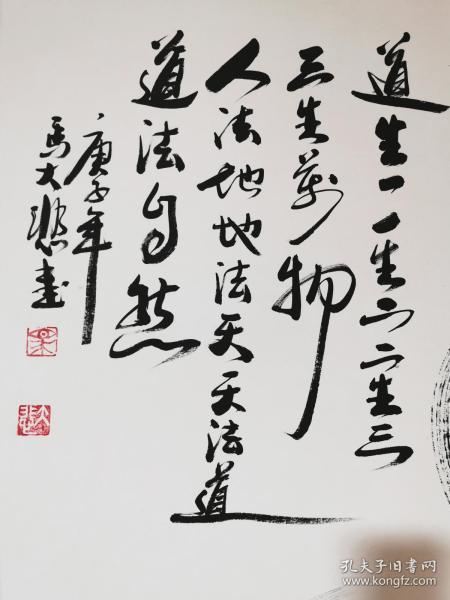 道生一一生二二生三
三生萬物
人法地地法天天法道
道法自然
庚子年
馬大悲書
孔夫子旧书网
www.kongfz.com